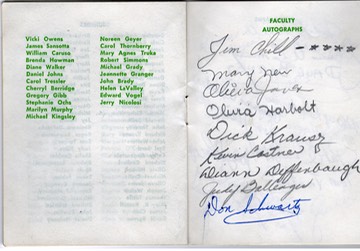 Vicki Owens
James Sansotta
William Caruso
Brenda Howman
Diane Walker
Daniel Johns
Carol Tressler
Cherryl Berridge
Gregory Gibb
Stephanie Ochs
Marilyn Murphy
Michael Kingsley
Noreen Geyer
Carol Thornberry
Mary Agnes Treka
Robert Simmons
Michael Grady
Jeannette Granger
John Brady
Helen LaValley
Edward Vogel
Jerry Nicolosi
FACULTY
AUTOGRAPHS
Jim Chill - ****
Mary New
Olivia
Olivia Harbolt
Dick Krause
Kevin Costner
Diann Deffenbaugh
Judy Ballenger
Don Schwartz